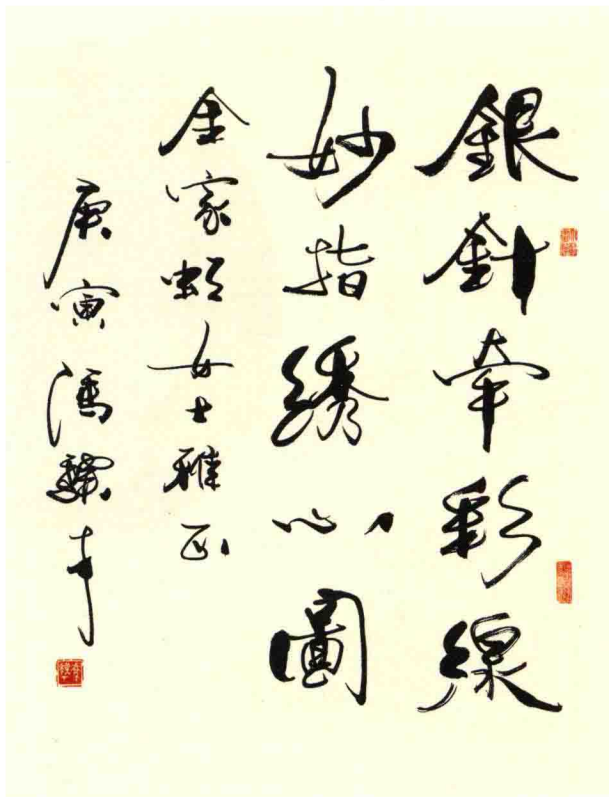 銀針牽彩線
妙指绣心圖
金家虹女士雅正
庚寅 馮